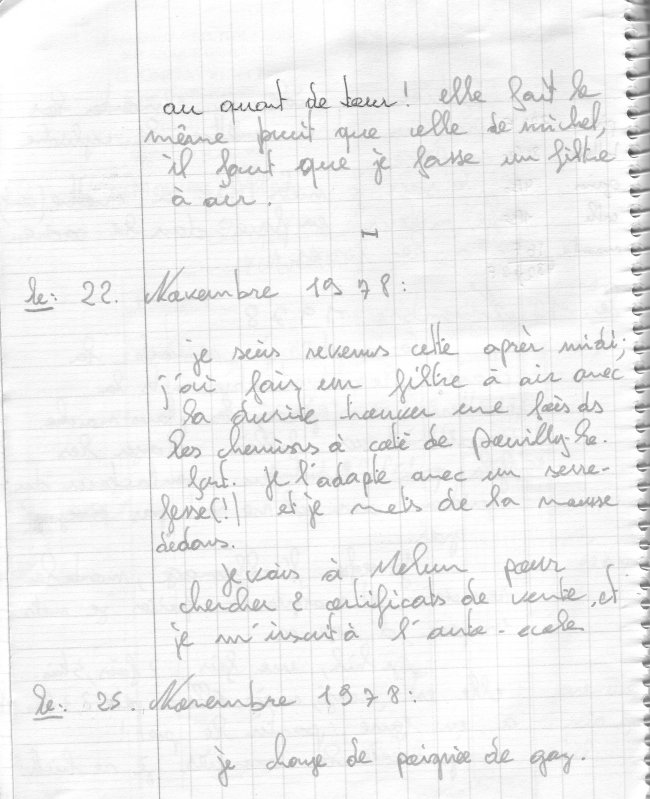 au quart de tour! elle fait le
même bruit que celle de michel,
il faut que je fasse un filtre
à air.
le: 22. Novembre 1978:
je suis revenus cette après midi;
j'ai fais un filtre à air avec
la durite trouver une fois ds
les chemins à coté de pouilly-le-
fort. je l'adapte avec un serre-
fesse(!) et je mets de la mousse
dedans.
je vais à Melun pour
chercher 2 certificats de vente, et
je m'inscrit à l'auto-ecole
le: 25. Novembre 1978:
je change de poignée de gaz.